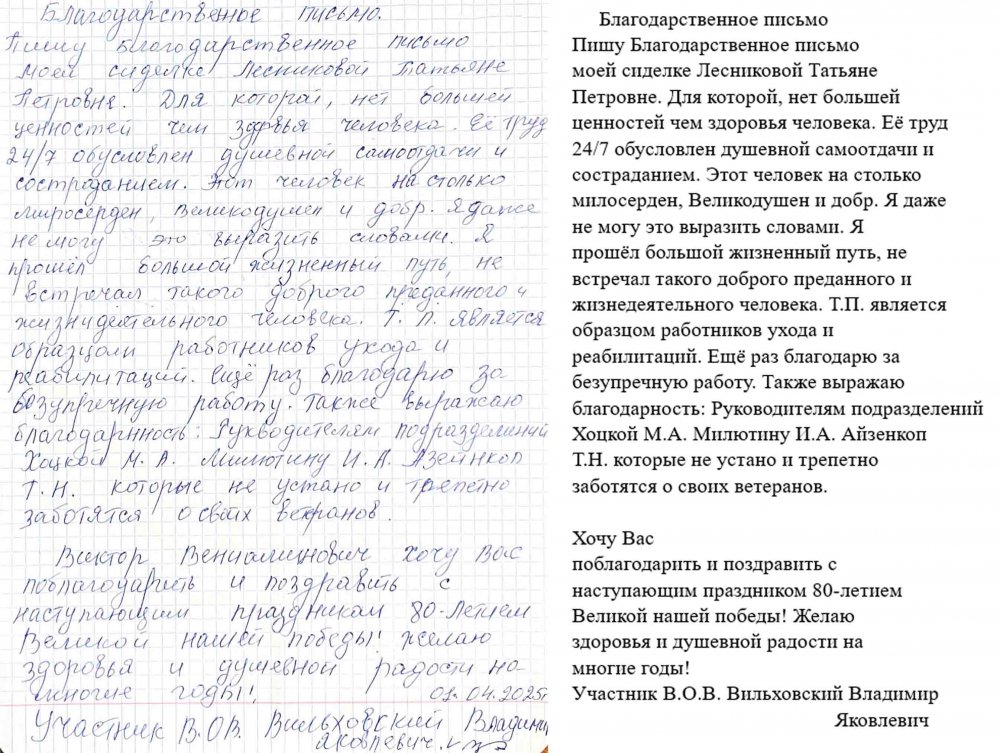 Благодарственное письмо.
Пишу благодарственное письмо
моей сиделке Лесниковой Татьяне
Петровне. Для которой, нет большей
ценностей чем здоровья человека. Её труд
24/7 обусловлен душевной самоотдачи и
состраданием. Этот человек на столько
милосерден, Великодушен и добр. Я даже
не могу это выразить словами. Я
прошёл большой жизненный путь, не
встречал такого доброго преданного и
жизнидеятельного человека. Т. П. является
образцом работников ухода и
реабилитаций. Ещё раз благодарю за
безупречную работу. Также выражаю
благодарнность: Руководителям подразделений
Хоцкой М. А. Милютину И. А. Азейнкоп
Т. Н. которые не устано и трепетно
заботятся о своих ветеранов.
Виктор Вениаминович хочу Вас
поблагодарить и поздравить с
наступающим праздником 80-Летием
Великой нашей победы! желаю
здоровья и душевной радости на
многие годы! 01.04.2025г
Участник В.О.В. Вильховский Владимир
Яковлевич.
Благодарственное письмо
Пишу Благодарственное письмо
моей сиделке Лесниковой Татьяне
Петровне. Для которой, нет большей
ценностей чем здоровья человека. Её труд
24/7 обусловлен душевной самоотдачи и
состраданием. Этот человек на столько
милосерден, Великодушен и добр. Я даже
не могу это выразить словами. Я
прошёл большой жизненный путь, не
встречал такого доброго преданного и
жизнедеятельного человека. Т.П. является
образцом работников ухода и
реабилитаций. Ещё раз благодарю за
безупречную работу. Также выражаю
благодарность: Руководителям подразделений
Хоцкой М.А. Милютину И.А. Айзенкоп
Т.Н. которые не устано и трепетно
заботятся о своих ветеранов.
Хочу Вас
поблагодарить и поздравить с
наступающим праздником 80-летием
Великой нашей победы! Желаю
здоровья и душевной радости на
многие годы!
Участник В.О.В. Вильховский Владимир
Яковлевич